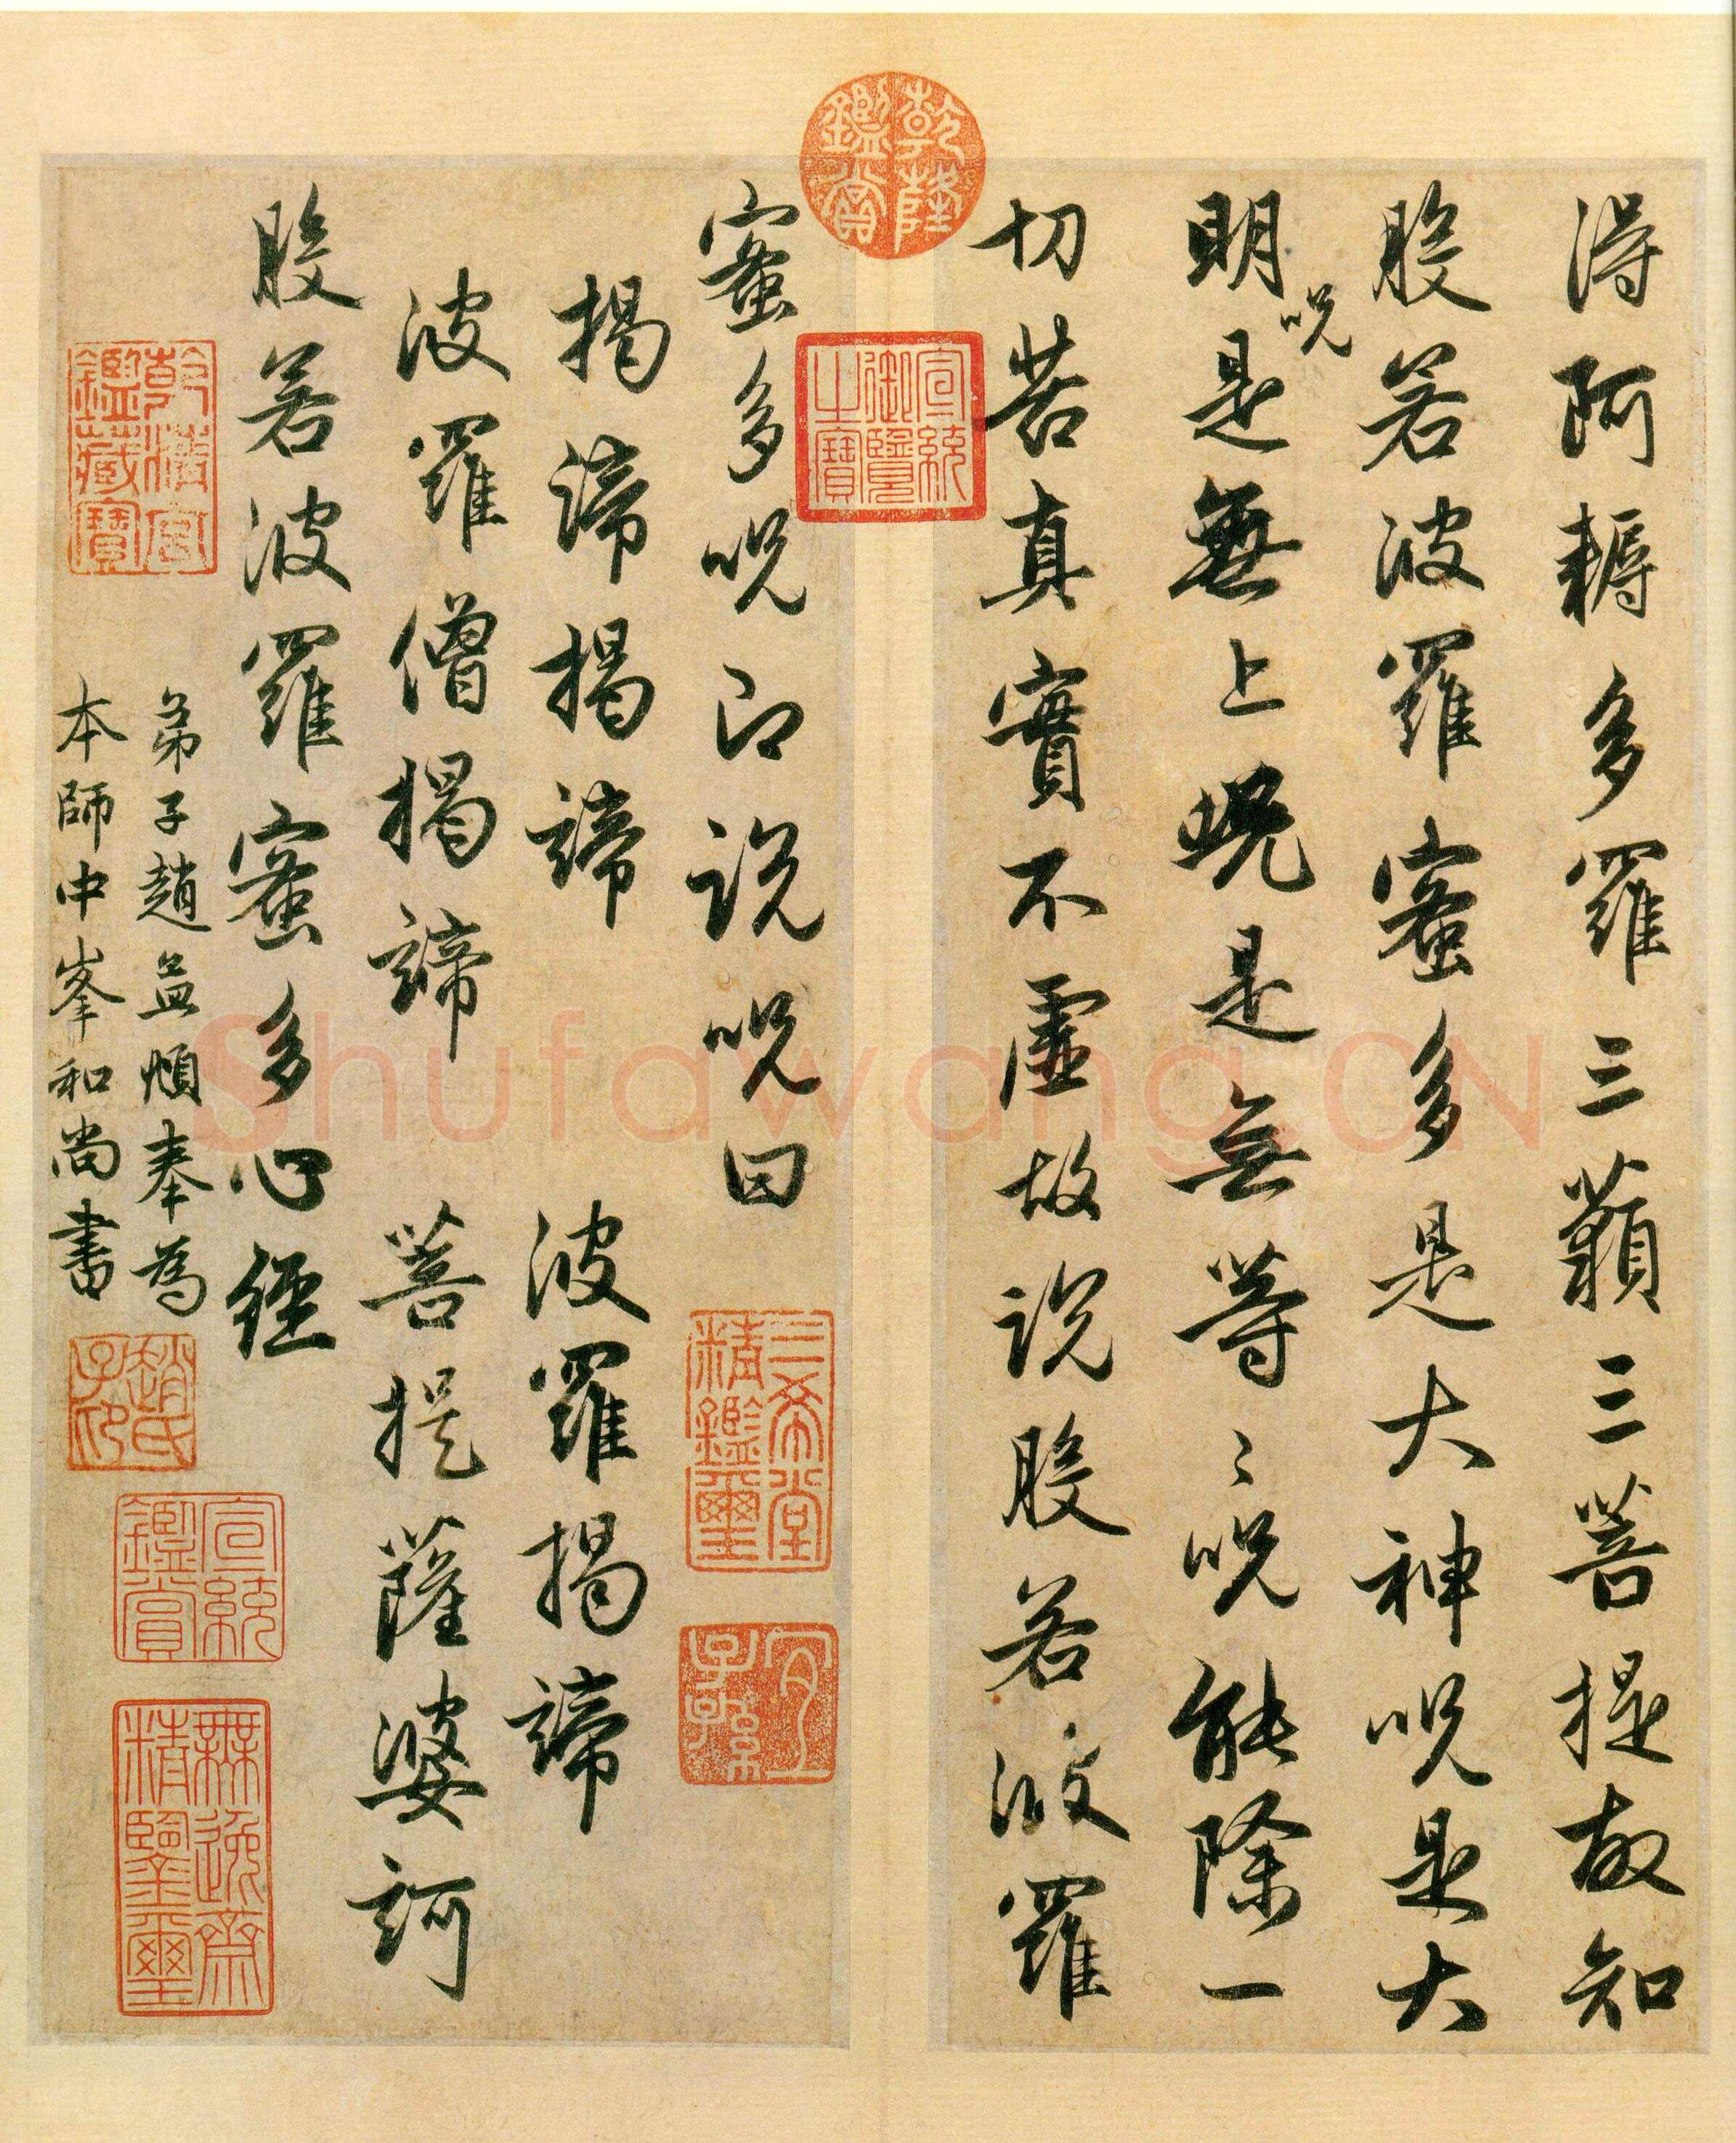 得阿耨多羅三藐三菩提故知
般若波羅蜜多是大神呪是大
明呪是無上呪是無等〻呪能除一
切苦真實不虛故說般若波羅
蜜多呪即說呪曰
揭諦揭諦 波羅揭諦
波羅僧揭諦 菩提薩婆訶
般若波羅蜜多心經
弟子趙孟頫奉為
本師中峯和尚書
乾隆鑑賞
宣統御覽之寶
三希堂精鑑璽
宜子孫
乾清宮鑑藏寶
趙氏子昂
宣統鑑賞
無逸齋精鑒璽
Shufawang.CN